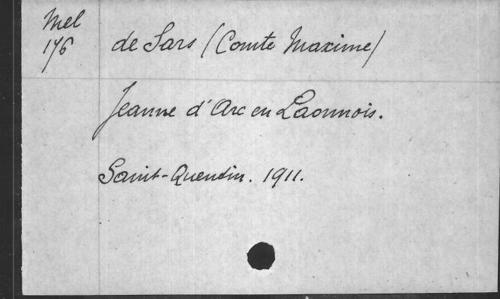 Mel
176
de Sars (Comte Maxime)
Jeanne d'Arc en Laonnois.
Saint-Quentin. 1911.